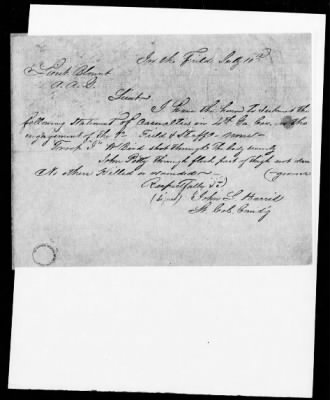 In the Field July 10th
Lieut Blount
A. A. G.
Lieut
I have the honor to submit the
following statement of casualties in 4th Ga. Cav. in the
engagement of the 9th Field & Staff none
Troop W Bond shot through the body
John Petty through flesh part of thigh not dan
No others killed or wounded (gerous
Respectfully &c
(Signed) John L Harris
Lt Col. Comdg